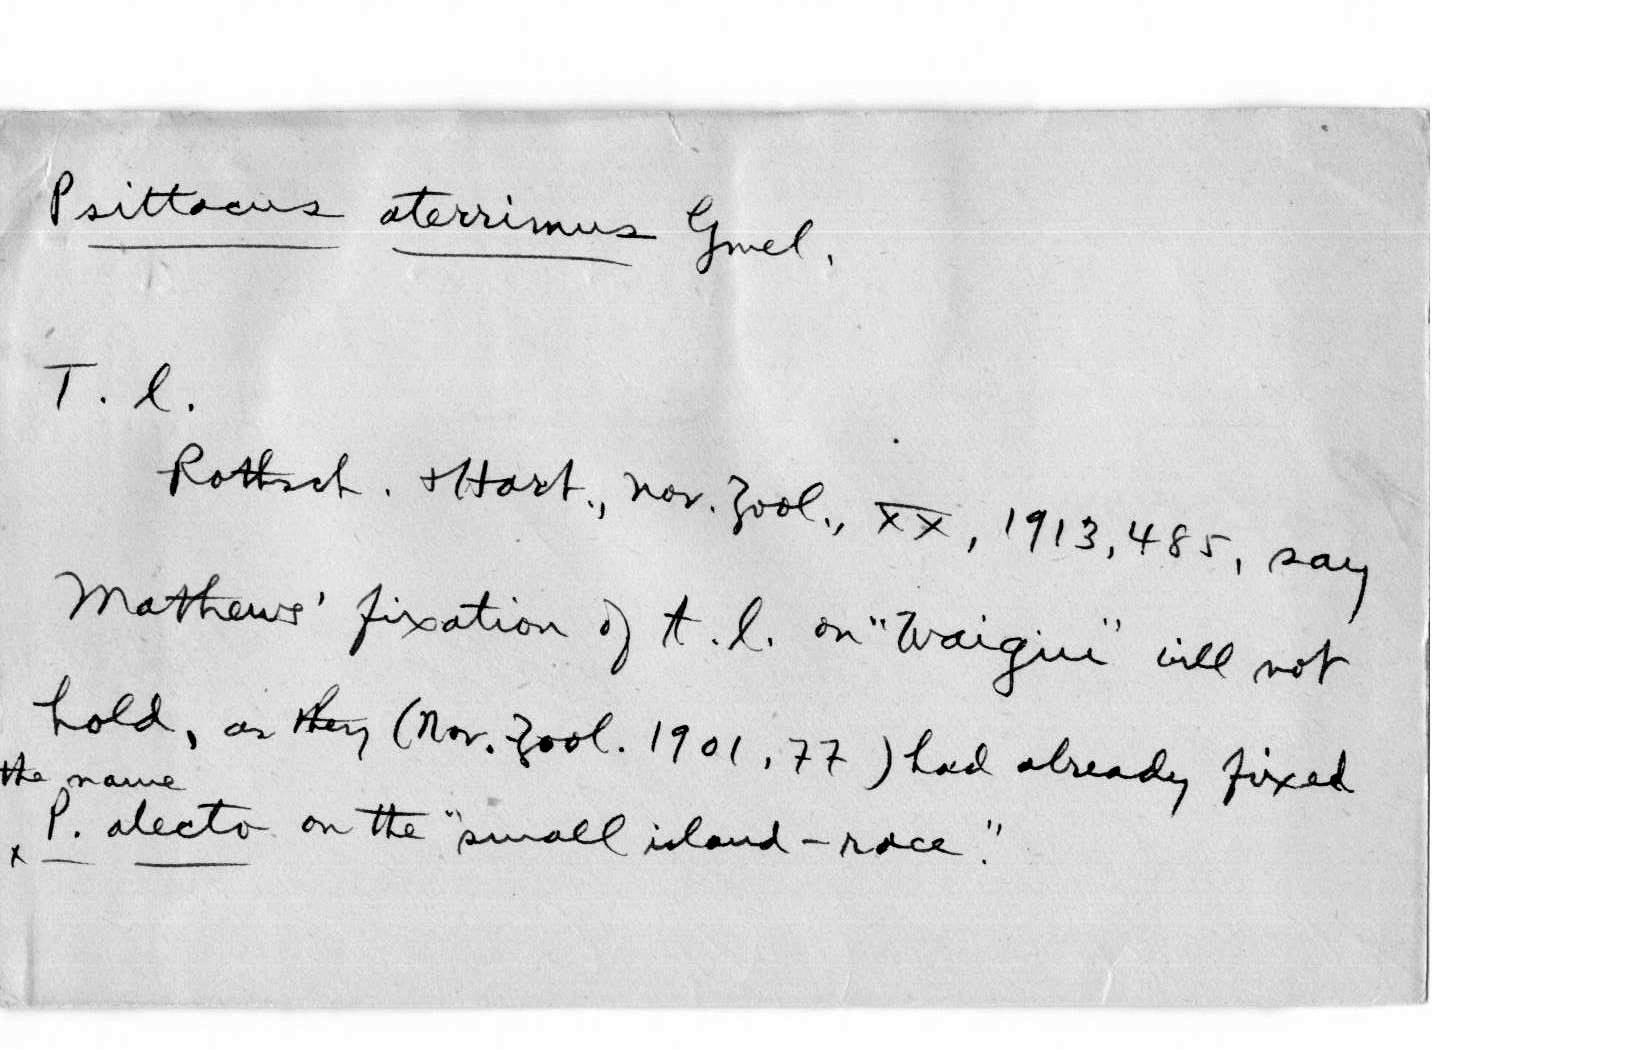 Psittacus aterrimus Gmel.
T. l.
Rothsch. + Hart., Nov. Zool., XX, 1913, 485, say
Mathews' fixation of t. l. on "Waigiu" will not
hold, as they (Nov. Zool. 1901, 77) had already fixed
the name
x P. alecto on the "small island-race."